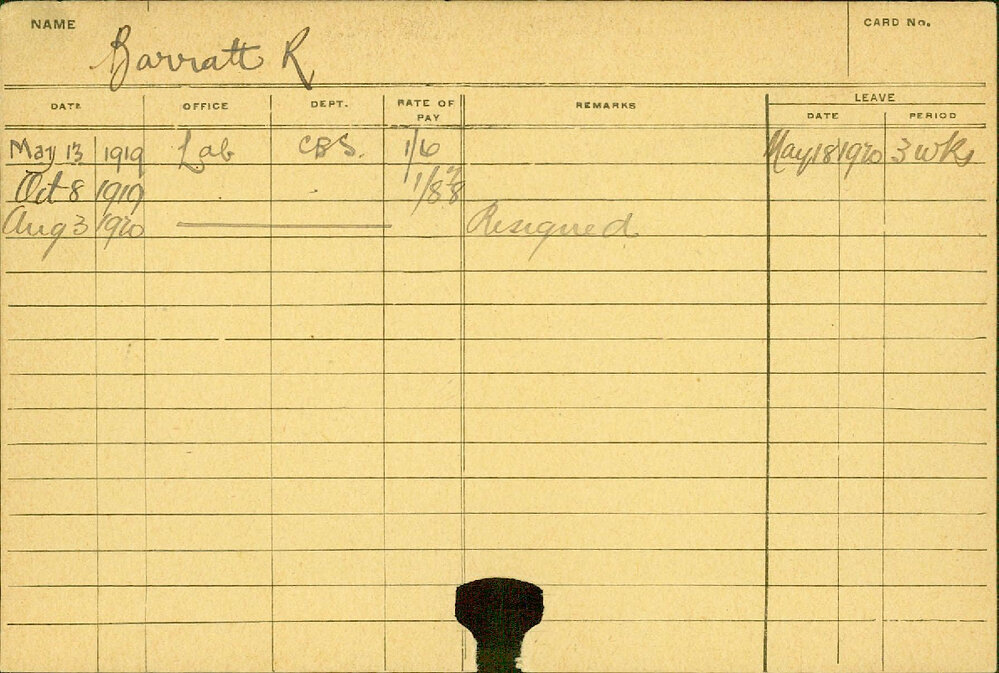 NAME Barratt R CARD No.
DATE OFFICE DEPT. RATE OF PAY REMARKS LEAVE
DATE PERIOD
May 13 1919 Lab CBS. 1/6 May 18 1920 3 wks
Oct 8 1919 1/8 7/8
Aug 3 1920 Resigned